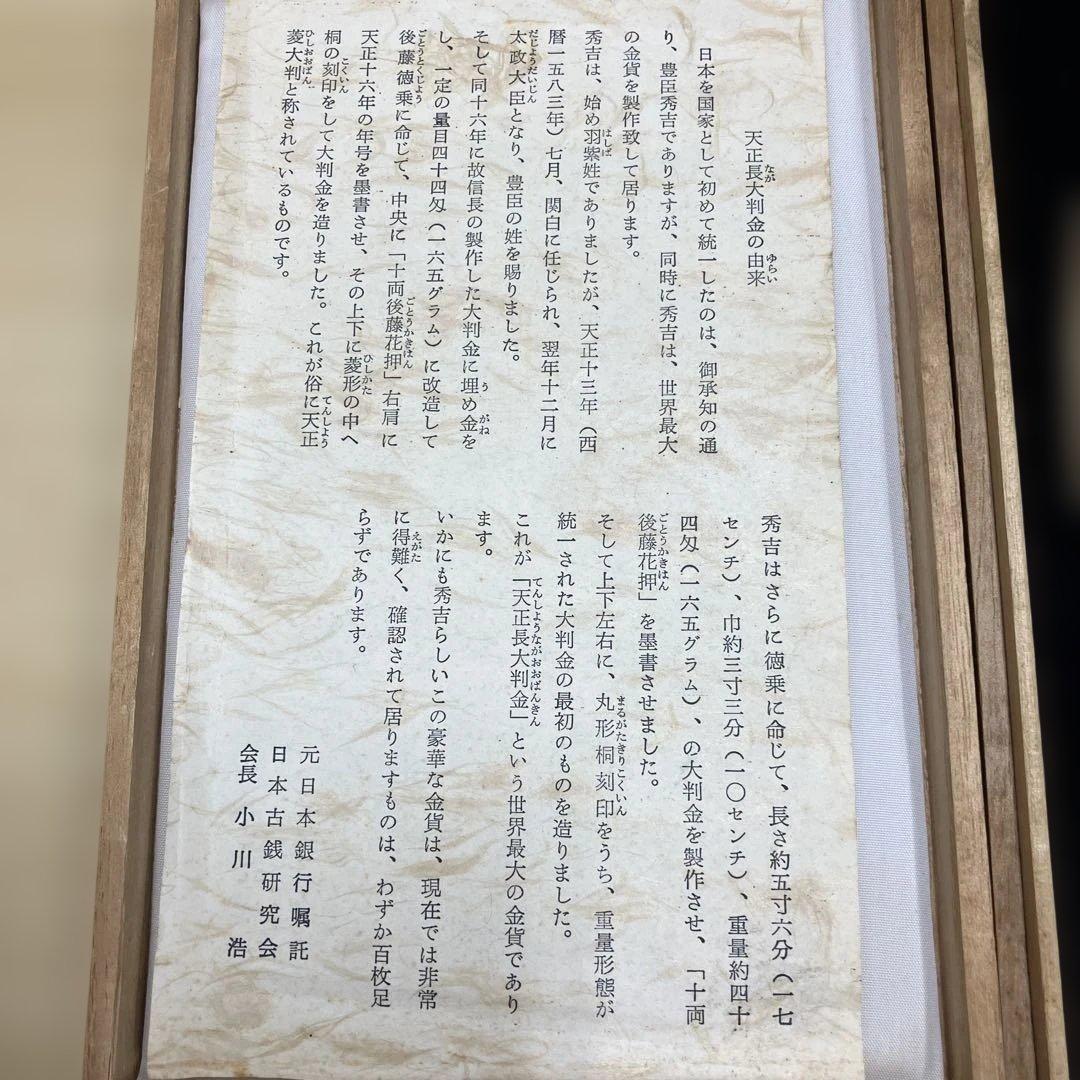 天正長大判金の由来
日本を国家として初めて統一したのは、御承知の通
り、豊臣秀吉でありますが、同時に秀吉は、世界最大
の金貨を製作致して居ります。
秀吉は、始め羽紫姓でありましたが、天正十三年（西
暦一五八三年）七月、関白に任じられ、翌年十二月に
太政大臣となり、豊臣の姓を賜りました。
そして同十六年に故信長の製作した大判金に埋め金を
し、一定の量目四十四匁（一六五グラム）に改造して
後藤徳乗に命じて、中央に「十両後藤花押」右肩に
天正十六年の年号を墨書させ、その上下に菱形の中へ
桐の刻印をして大判金を造りました。これが俗に天正
菱大判と称されているものです。
秀吉はさらに徳乗に命じて、長さ約五寸六分（一七
センチ）、巾約三寸三分（一〇センチ）、重量約四十
四匁（一六五グラム）、の大判金を製作させ、「十両
後藤花押」を墨書させました。
そして上下左右に、丸形桐刻印をうち、重量形態が
統一された大判金の最初のものを造りました。
これが「天正長大判金」という世界最大の金貨であり
ます。
いかにも秀吉らしいこの豪華な金貨は、現在では非常
に得難く、確認されて居りますものは、わずか百枚足
らずであります。
元日本銀行嘱託
日本古銭研究会
会長 小川 浩